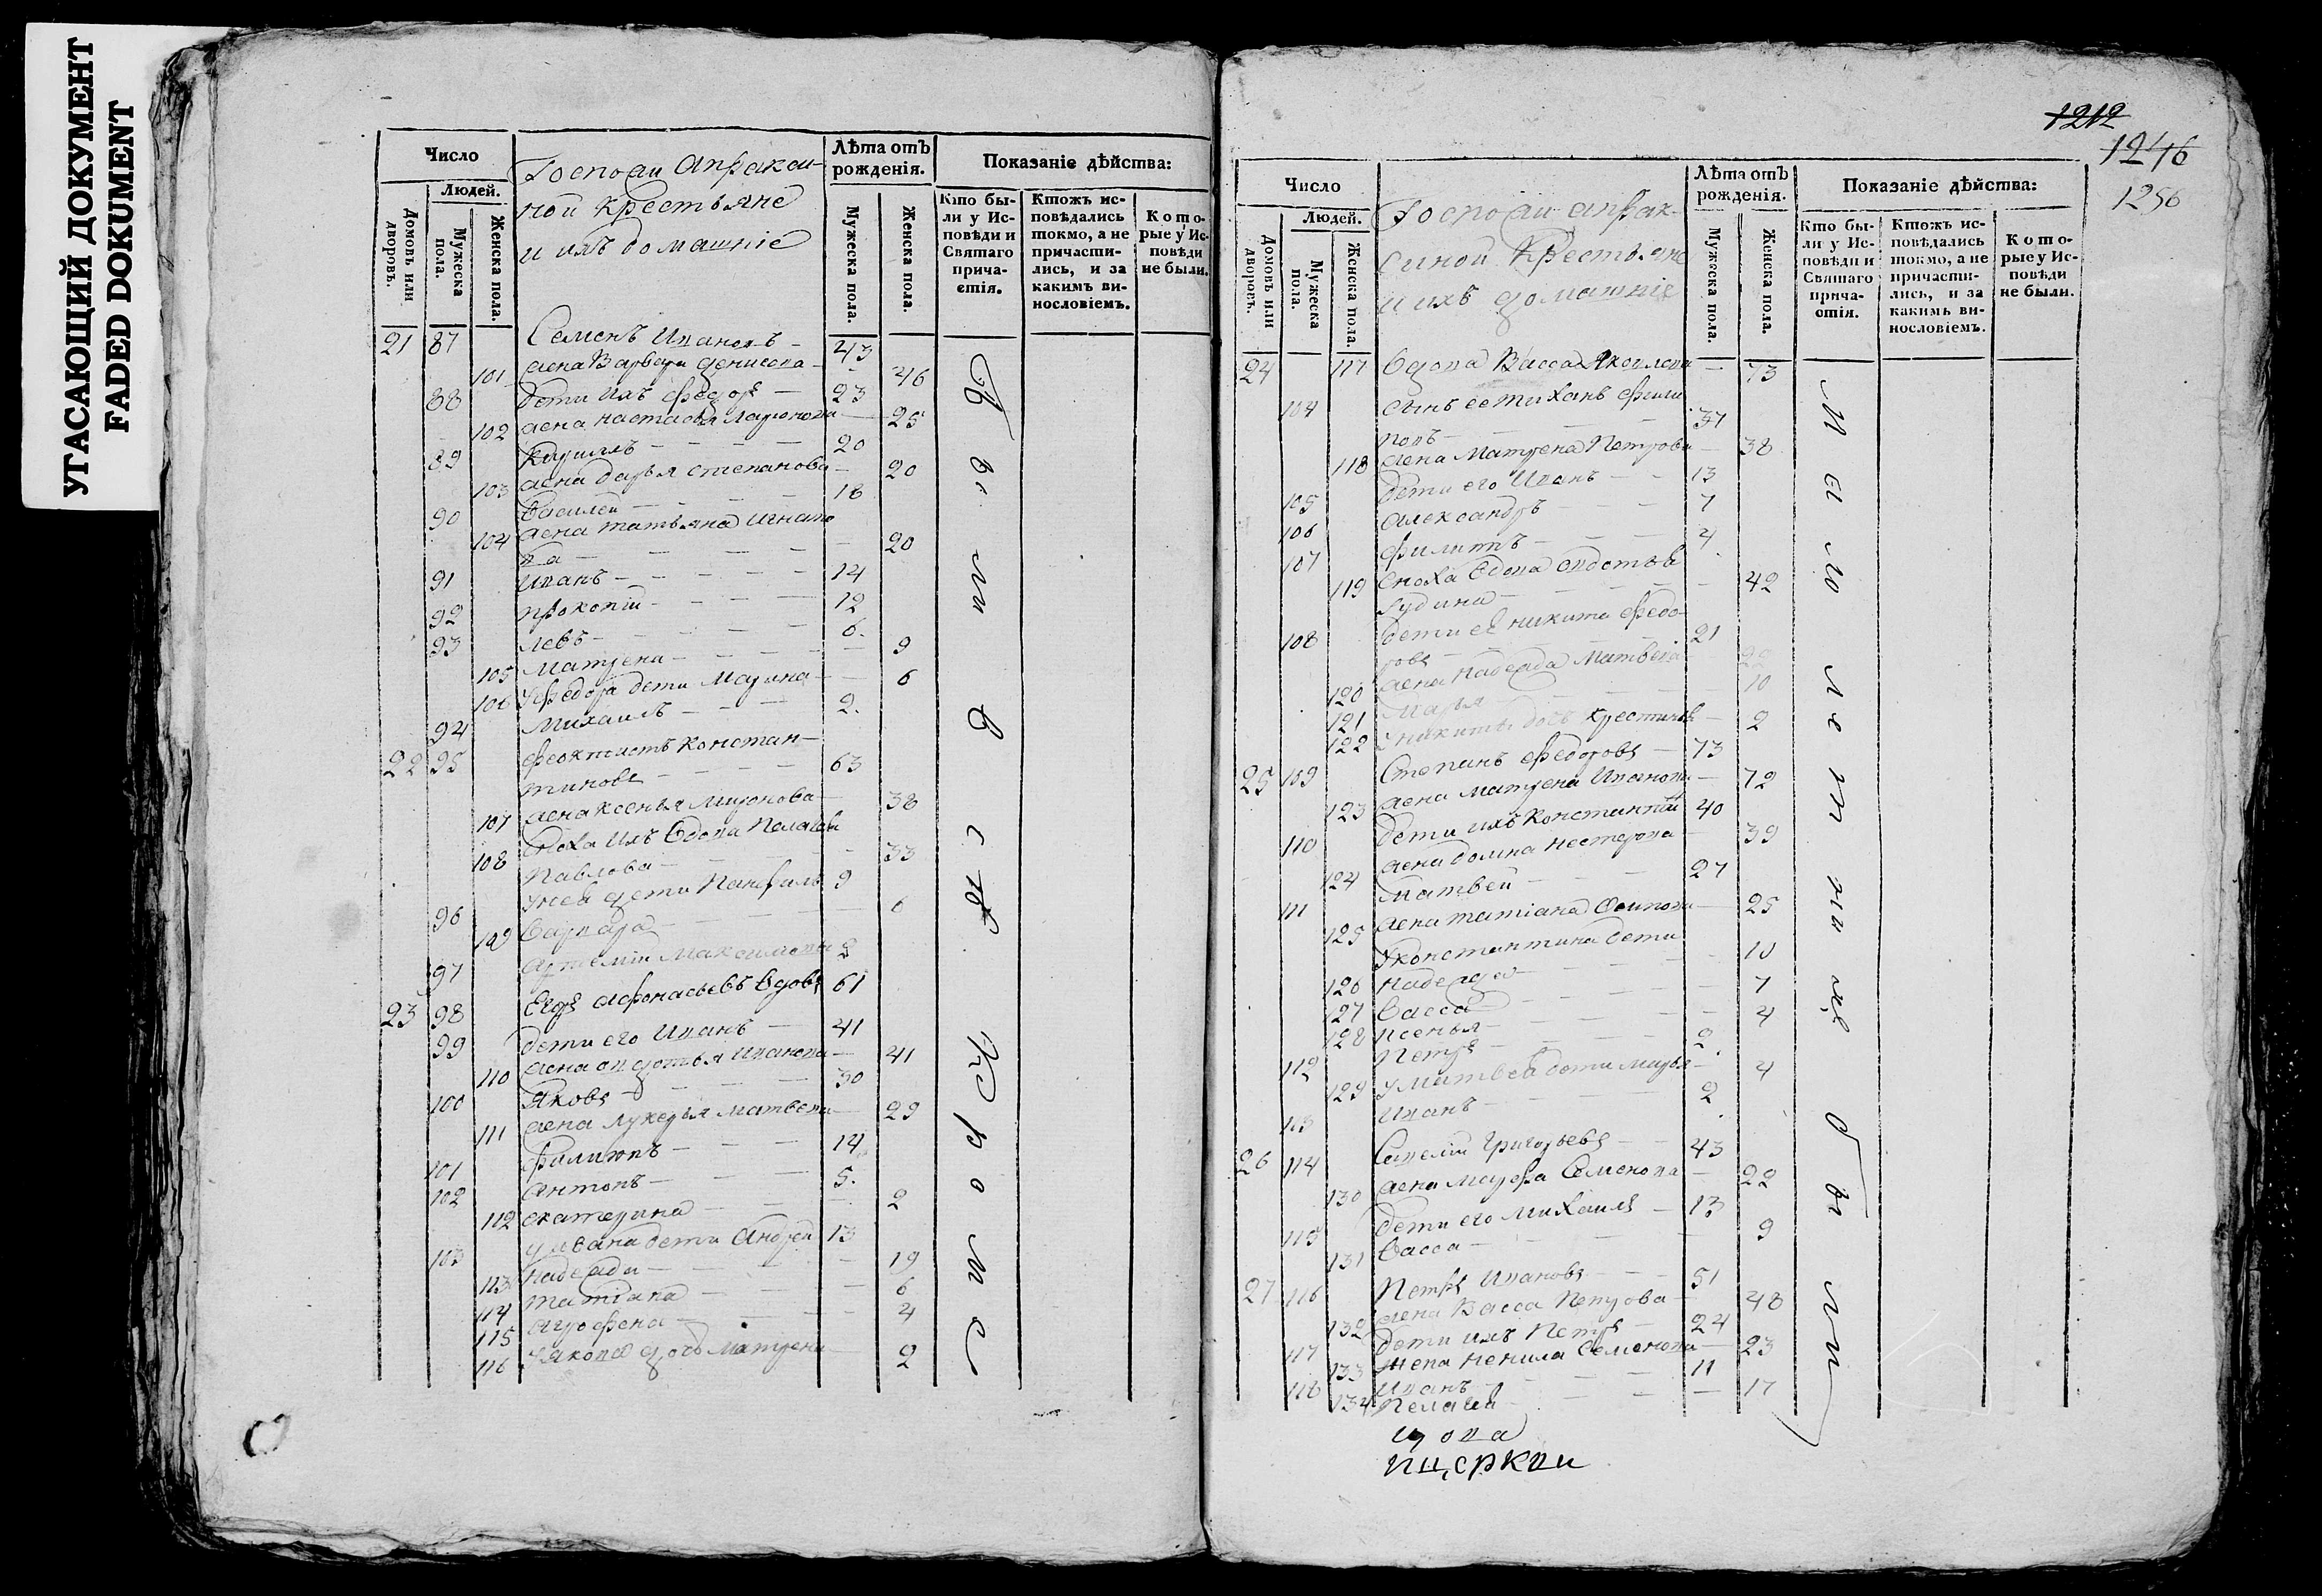 УТАСАЮЩИЙ ДОКУМЕНТ
FADED DOKUMENT
Число
Людей.
Домовъ или дворовъ.
Мужеска пола.
Женска пола.
Госпожи Апракси-
ной крестьяне
и ихъ домашніе
Лѣта отъ рожденія.
Мужеска пола.
Женска пола.
Показаніе дѣйства:
Кто бы-
ли у Ис-
повѣди и
Святаго
прича-
стія.
Ктожъ ис-
повѣдались
токмо, а не
причасти-
лись, и за
какимъ ви-
нословіемъ.
Кото-
рые у Ис-
повѣди
не были.
21 87 Семенъ Ивановъ 43
101 жена Варвара Денисова 46
88 дети ихъ Федоръ 23
102 жена настасья Миронова 25
89 Кирилъ 20
103 жена дарья степанова 20
90 Василей 18
104 жена татьяна Игнато
ва 20
91 Иванъ 14
92 прокопій 12
93 левъ 6
105 Матрена 9
106 У федора дети Марина 6
94 Михаилъ 2
22 95 феоктистъ Констан-
тиновъ 63
107 жена ксенья Миронова 38
108 Сноха ихъ вдова Пелагея
Павлова 33
96 у нея дети Панфилъ 9
109 Варвара 6
97 Артемій Максимовъ
23 98 Егоръ Афонасьевъ вдовъ 61
99 дети его Иванъ 41
110 жена авдотья Иванова 41
100 Яковъ 30
111 жена Лукерья Матвева 29
101 Филипъ 14
102 Антонъ 5
112 екатерина 2
103 у ивана дети Андрей 13
113 надежда 19
114 татіана 6
115 агрофена 4
116 У якова дочь матрена 2
1212
1246
1256
Число
Людей.
Домовъ или дворовъ.
Мужеска пола.
Женска пола.
Госпожи апрак-
синой крестьяне
и ихъ домашніе
Лѣта отъ рожденія.
Мужеска пола.
Женска пола.
Показаніе дѣйства:
Кто бы-
ли у Ис-
повѣди и
Святаго
прича-
стія.
Ктожъ ис-
повѣдались
токмо, а не
причасти-
лись, и за
какимъ ви-
нословіемъ.
Кото-
рые у Ис-
повѣди
не были.
24 117 Вдова Васса Яковлева 73
104 сынъ ее тиханъ фили
повъ 37
118 жена Матрена Петрова 38
105 дети его Иванъ 13
106 александръ 7
107 филипъ 4
119 сноха вдова авдотья
42
108 дети ее никита федо-
ровъ 21
120 жена надежда Матвева
121 Марья 10
122 У никиты дочь крестина 2
25 109 Степанъ федоровъ 73
123 жена матрена Иванова 72
110 дети ихъ Константинъ 40
124 жена домна нестерова 39
111 матвей 27
125 жена татіана Осипова 25
У константина дети
126 надежда 10
127 Васса 7
128 ксенья 4
112 Петръ 2
129 У матвея дети марья 4
113 Иванъ 2
26 114 Савелій Григорьевъ 43
130 жена марфа Семенова 22
115 дети его михаилъ 13
131 Васса 9
27 116 Петръ Ивановъ 51
132 жена Васса Петрова 48
117 дети ихъ Петръ 24
133 жена ненила Семенова 23
118 Иванъ 11
134 Пелагея 17